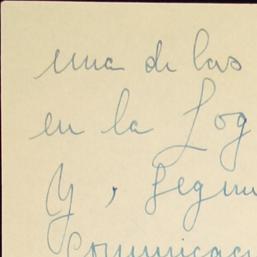 una de las
en la Log
Y, segun
Comunicac